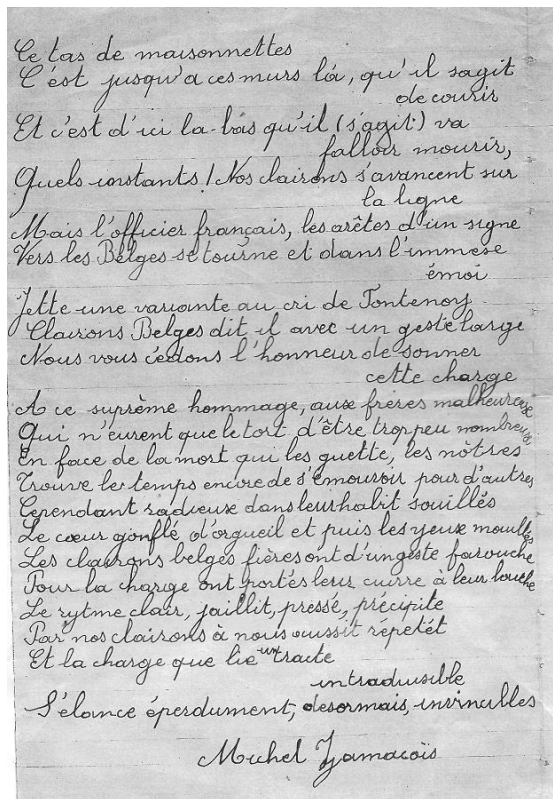 Ce tas de maisonnettes
C'est jusqu'a ces murs là, qu'il sagit
de courir
Et c'est d'ici la-bas qu'il (s'agit) va
falloir mourir,
Quels instants! Nos clairons s'avancent sur
la ligne
Mais l'officier français, les arêtes d'un signe
Vers les Belges se tourne et dans l'immese
émoi
Jette une variante au cri de Fontenoy
Clairons Belges dit il avec un geste large
Nous vous cédons l'honneur de sonner
cette charge
A ce suprème hommage, aux frères malheureux
Qui n'eurent que le tort d'être trop peu nombreux
En face de la mort qui les guette, les nôtres
Trouve le temps encore de s'émouvoir pour d'autres
Cependant radieux dans leur habit souillés
Le cœur gonflé d'orgueil et puis les yeux mouillés
Les clairons belges fières ont d'un geste farouche
Pour la charge ont portés leur cuivre à leur bouche
Le rytme clair, jaillit, pressé, précipite
Par nos clairons à nous aussit répetét
Et la charge que lie un traite
intraduisible
S'élance éperdument, desormais, invincibles
Michel Zamacoïs